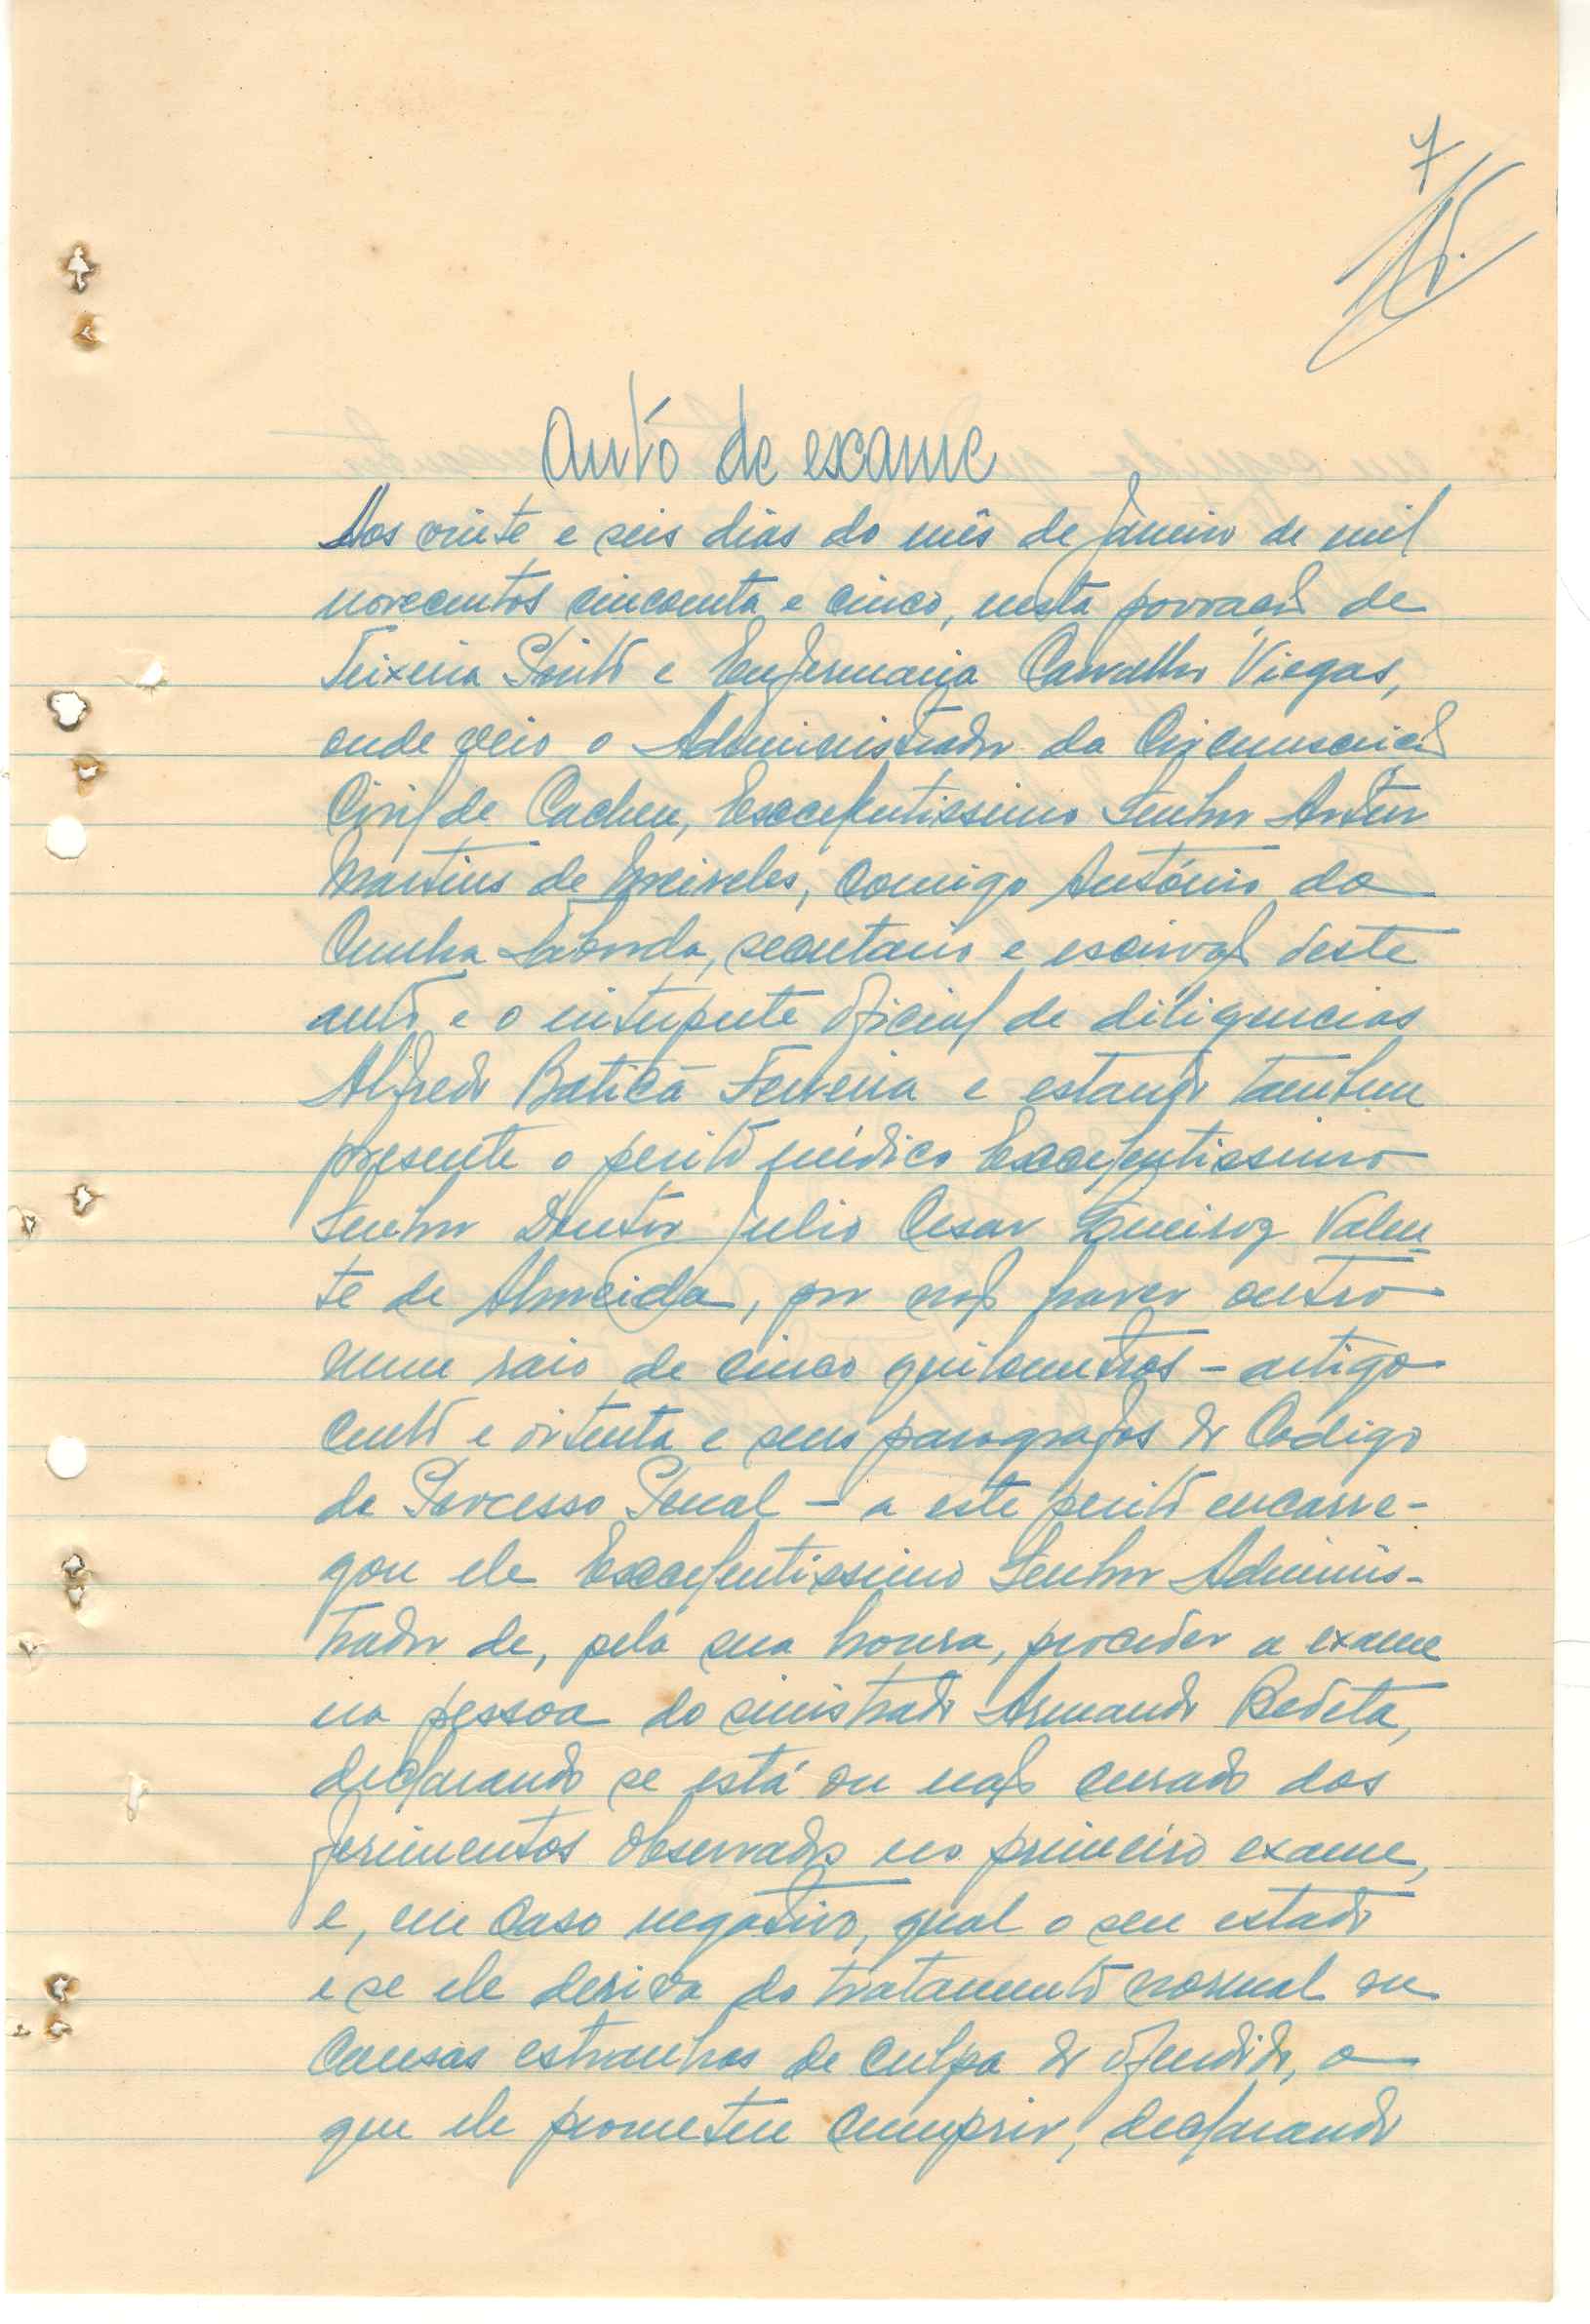 7
Auto de escame
Aos vinte e seis dias do mês de Janeiro de mil
novecentos cincoenta e cinco, nesta povoação de
Teixeira Pinto e Enfermaria Carvalho Viegas,
onde veio o Administrador da Circunscrição
Civil de Cacheu, Excelentissimo Senhor Artur
Martins de Meireles, comigo António da
Cunha Laborda, secretario e escrivão deste
auto e o interprete oficial de diligencias
Alfredo Baticã Ferreira e estando tambem
presente o perito médico Excelentissimo
Senhor Doutor Julio Cesar Queiroz Valen-
te de Almeida, por não haver outro
num raio de cinco quilometros - artigo
cento e oitenta e seus paragrafos do Codigo
do Processo Penal - a este perito encarre-
gou ele Excelentissimo Senhor Adminis-
trador de, pela sua honra, proceder a exame
na pessoa do sinistrado Armando Bedeta,
declarando se está ou não curado dos
ferimentos observados no primeiro exame,
e, em caso negativo, qual o seu estado
e se ele deriva do tratamento normal ou
causas estranhas de culpa do ofendido, o
que ele prometeu cumprir, declarando